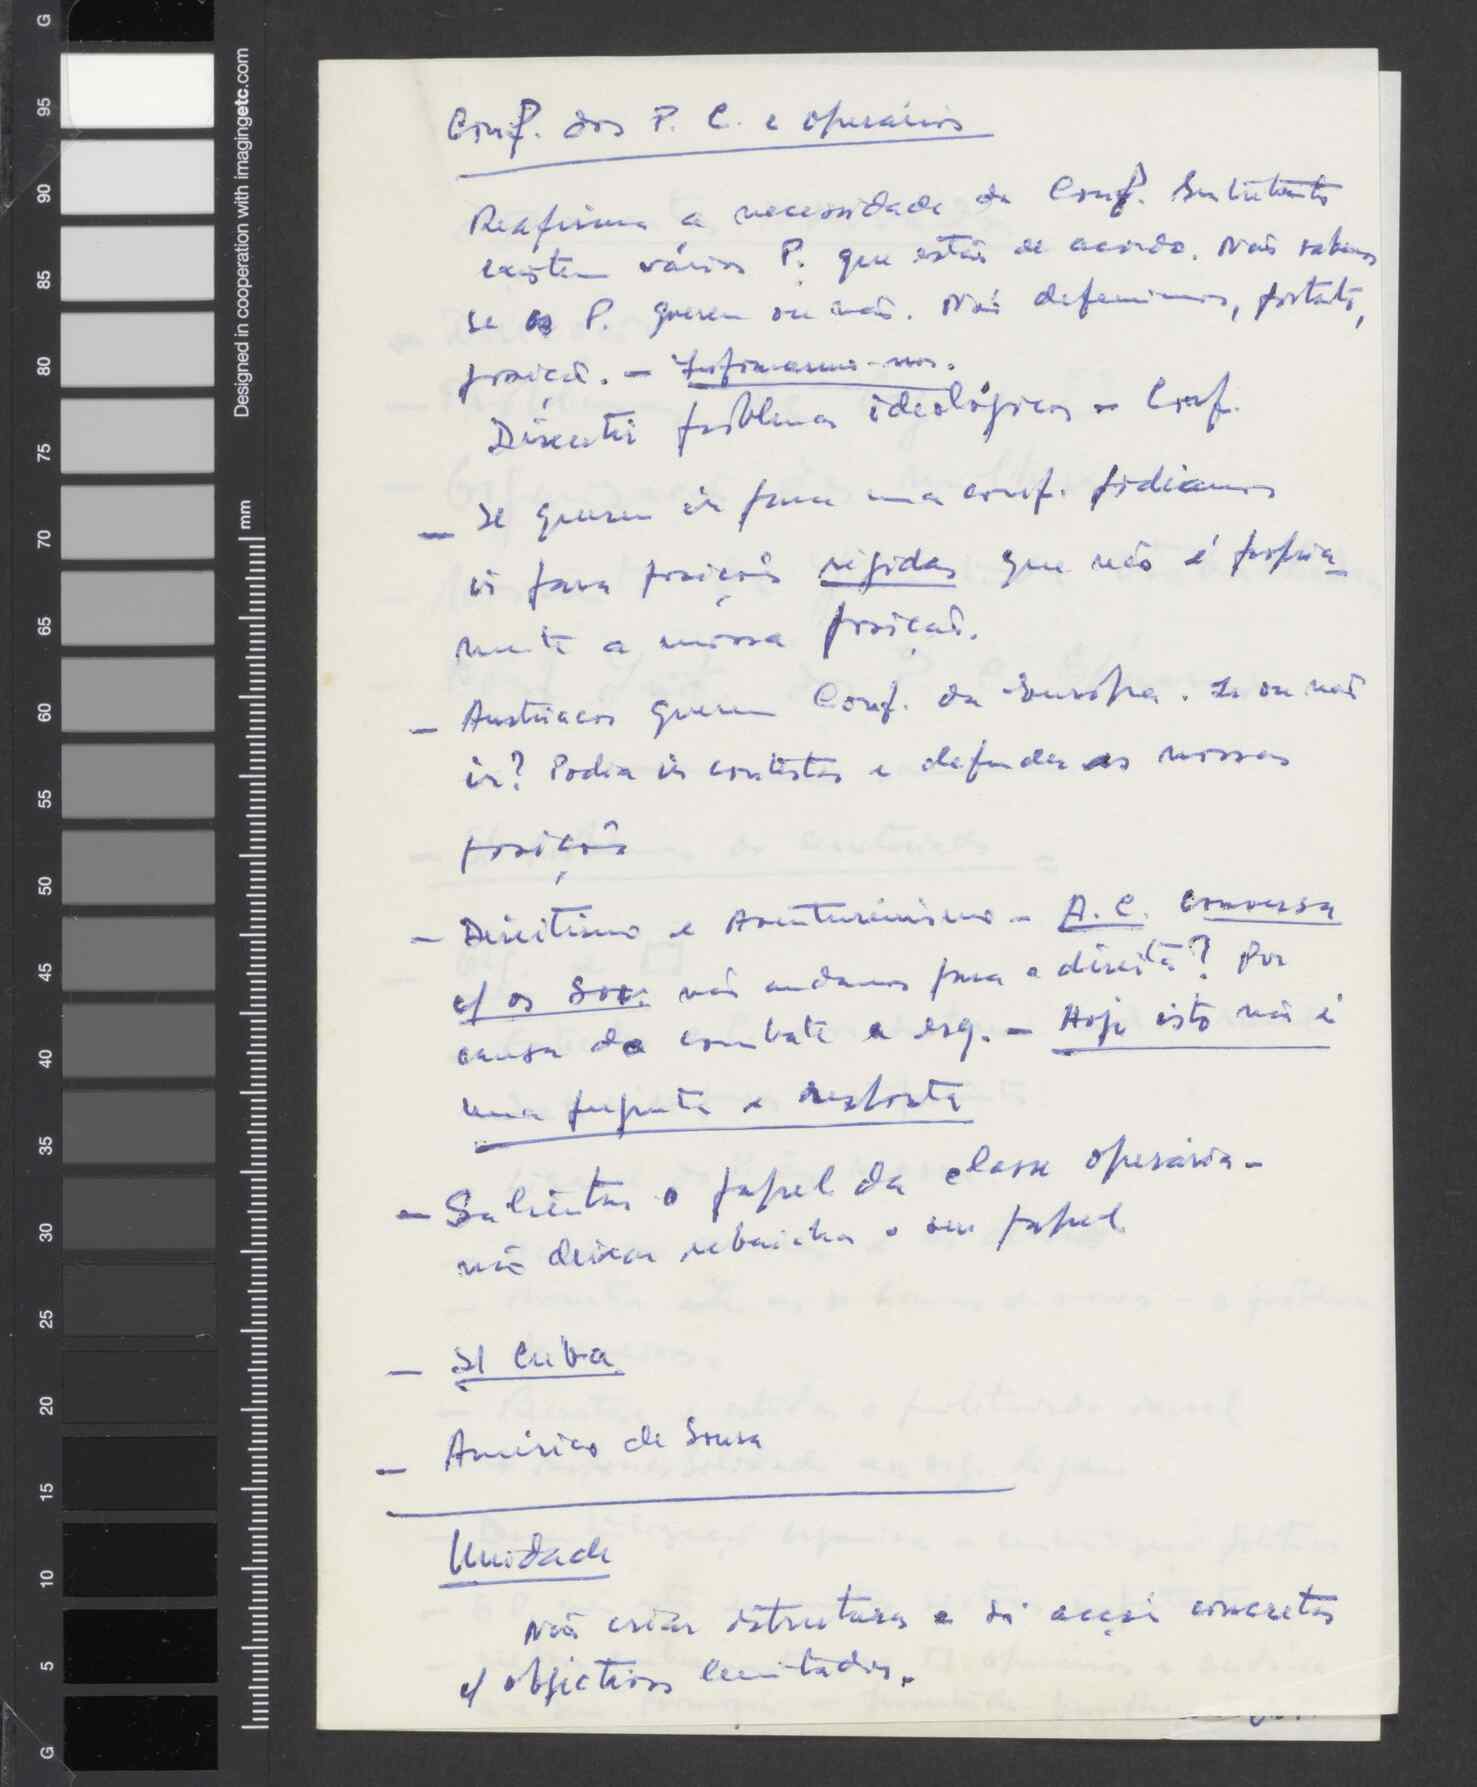 Conf. dos P. C. e operários
Reafirma a necessidade da Conf. Entretanto
existem vários P. que estão de acordo. Não sabemos
se os P. querem ou não. Nós defenimos, portanto,
posição. - Informarmo-nos.
Discutir problemas ideológicos - Conf.
- Se querem ir para uma conf. podíamos
ir para posições rígidas que não é propria-
mente a nossa posição.
- Austríacos querem Conf. da Europa. Ir ou não
ir? Podia ir contestar e defender as nossas
posições
- Direitismo e Aventureirismo - A. C. conversa
c/ os Sov. nós andamos para a direita? Por
causa do combate a esq. - Hoje isto não é
uma pergunta e resposta
- Salientar o papel da classe operária -
não deixar rebaixar o seu papel
- S/ Cuba
- Américo de Sousa
Unidade
Não criar estrutura e só acção concretas
c/ objectivos limitados.
Designed in cooperation with imagingetc.com
mm
G
95
90
85
80
75
70
65
60
55
50
45
40
35
30
25
20
15
10
5
G